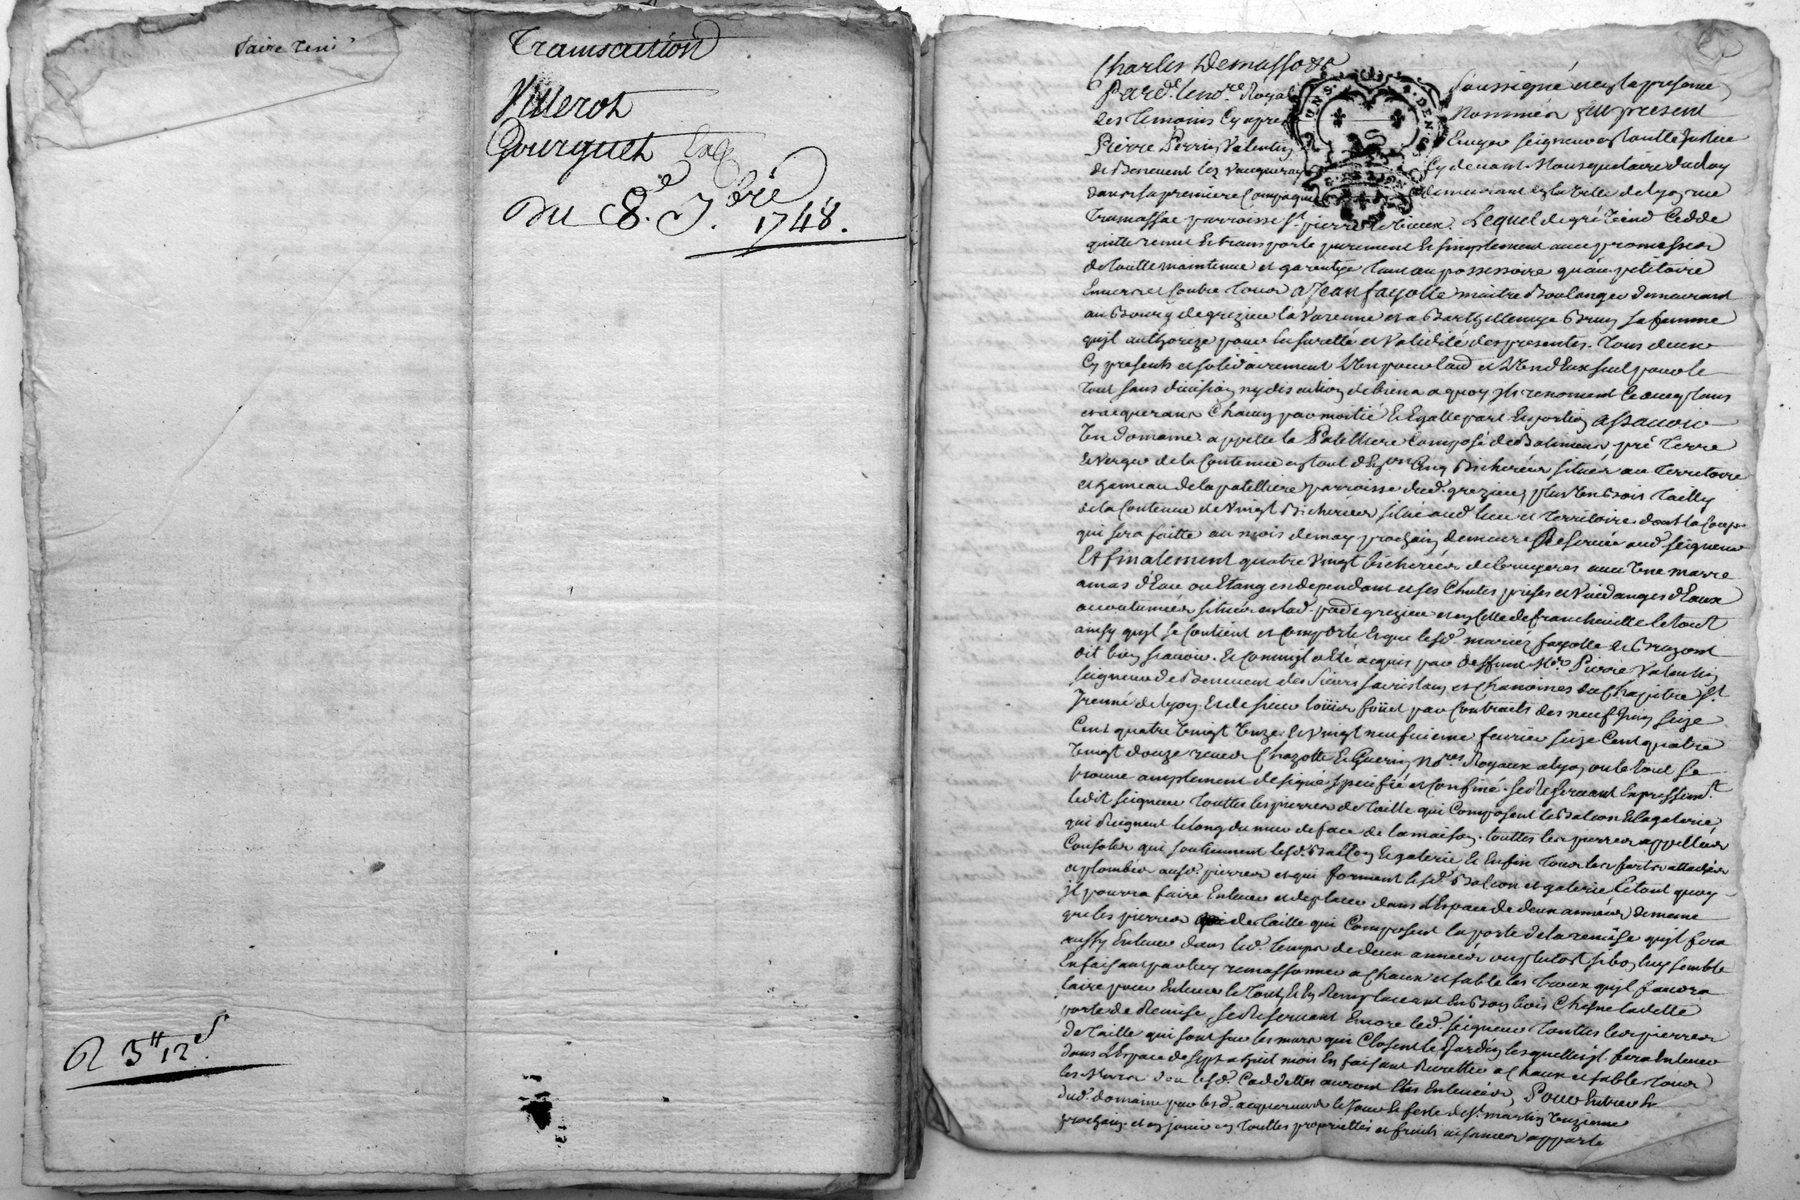 faire
Transaction
Villerot
Gourguet
Du 8.e 7.bre 1748.
3tt 12s
Charles Demasso
Pard. le no.re Royal soussigné et en la presence
des temoins cy apres nommés fut present
Pierre Perrin Valentin Ecuyer seigneur et toutte Justice
de Benevent les cy devant Mousquetaire du Roy
dans sa premiere Compagnie demeurant en la ville de Lyon rue
Tramassac parroisse St. pierre le vieux. Lequel de gré vend cedde
quitte remet et transporte purement et simplement avec promesse
de toutte maintenue et garentye tant au possessoire qu'au petitoire
Envers et Contre tous a Jean fayolle maitre Boulanger demeurant
au Bourg de grezieu la Varenne et a Barthellemye Brun sa femme
quil authorize pour la suretté et Validité des presentes. tous deux
Cy presents et solidairement l'un pour l'autre et l'un d'Eux seul pour le
tout sans division ny discution de biens a quoy ils renoncent acceptans
et acquerans Chacun par moitié et Egalle part et portion assavoir
Un domaine appellé la Patelliere Composé de Batimens, pré terre
et verger de la Contenue en tout d'Environ Cinq Bicherées situés au territoire
et hameau de la patelliere parroisse dud. grezieu, plus un Bois tailly
de la Contenue de Vingt Bicherées situé aud. lieu et territoire dont la Coupe
qui sera faitte au mois de may prochain demeure Reservée aud. seigneur
Et finalement quatre Vingt bicherées de bruyeres avec une marre
amas d'Eau ou Etang en dependant et ses Chutes prises et Vuidanges d'Eaux
accoutumées situées en lad. par. de grezieu et en Celle de francheville le tout
ainsy quil se Contient et Comporte et que lesd. mariés fayolle et Brun ont
dit bien sçavoir. Et Comm'il a Eté acquis par deffunt Mr. Pierre Valentin
seigneur de Benevent des sieurs sacristain et Chanoines du Chapitre St.
Irenné de Lyon, Et de sieur par Contracts des neuf Juin seize
Cent quatre vingt unze. et vingt neufvieme fevrier seize Cent quatre
Vingt douze receus Chazotte et Guerin nores Royaux a Lyon ou le tout se
trouve amplement designé speciffié et Confiné. se Reservant Expressemt.
ledit seigneur touttes les pierres de taille qui Composent le Balcon et la galerie
qui Reignent le long du mur de face de la maison, touttes les pierres appellées
Consoles qui soutiennent lesd. Balcon et galerie et Enfin tous les fers attachés
et plombés auxd. pierres et qui forment lesd. Balcon et galerie Le tout quoy
Il pourra faire Enlever et deplacer dans l'Espace de deux années de meme
que les pierres de taille qui Composent la porte de la remise quil fera
aussy Enlever dans led. temps de deux années ou plutost si bon luy semble
En faisant par luy remassonner a Chaux et sable les troux quil faudra
faire pour Enlever le tout, Et En Remplacant En Bon bois Chesne laditte
porte de Remise, se Reservant Encore led. seigneur touttes les pierres
de taille qui sont sur les murs qui Closent le Jardin lesquelles il fera Enlever
dans l'Espace de sept a huit mois En faisant Revettir a Chaux et sable tous
les Murs d'ou lesd. Caddettes auront Etés Enlevées, Pour Entrer Et
dud. domaine par lesd. acquereurs le Jour et feste de St. martin unzieme
prochain. et en jouir en touttes proprietés et fruits